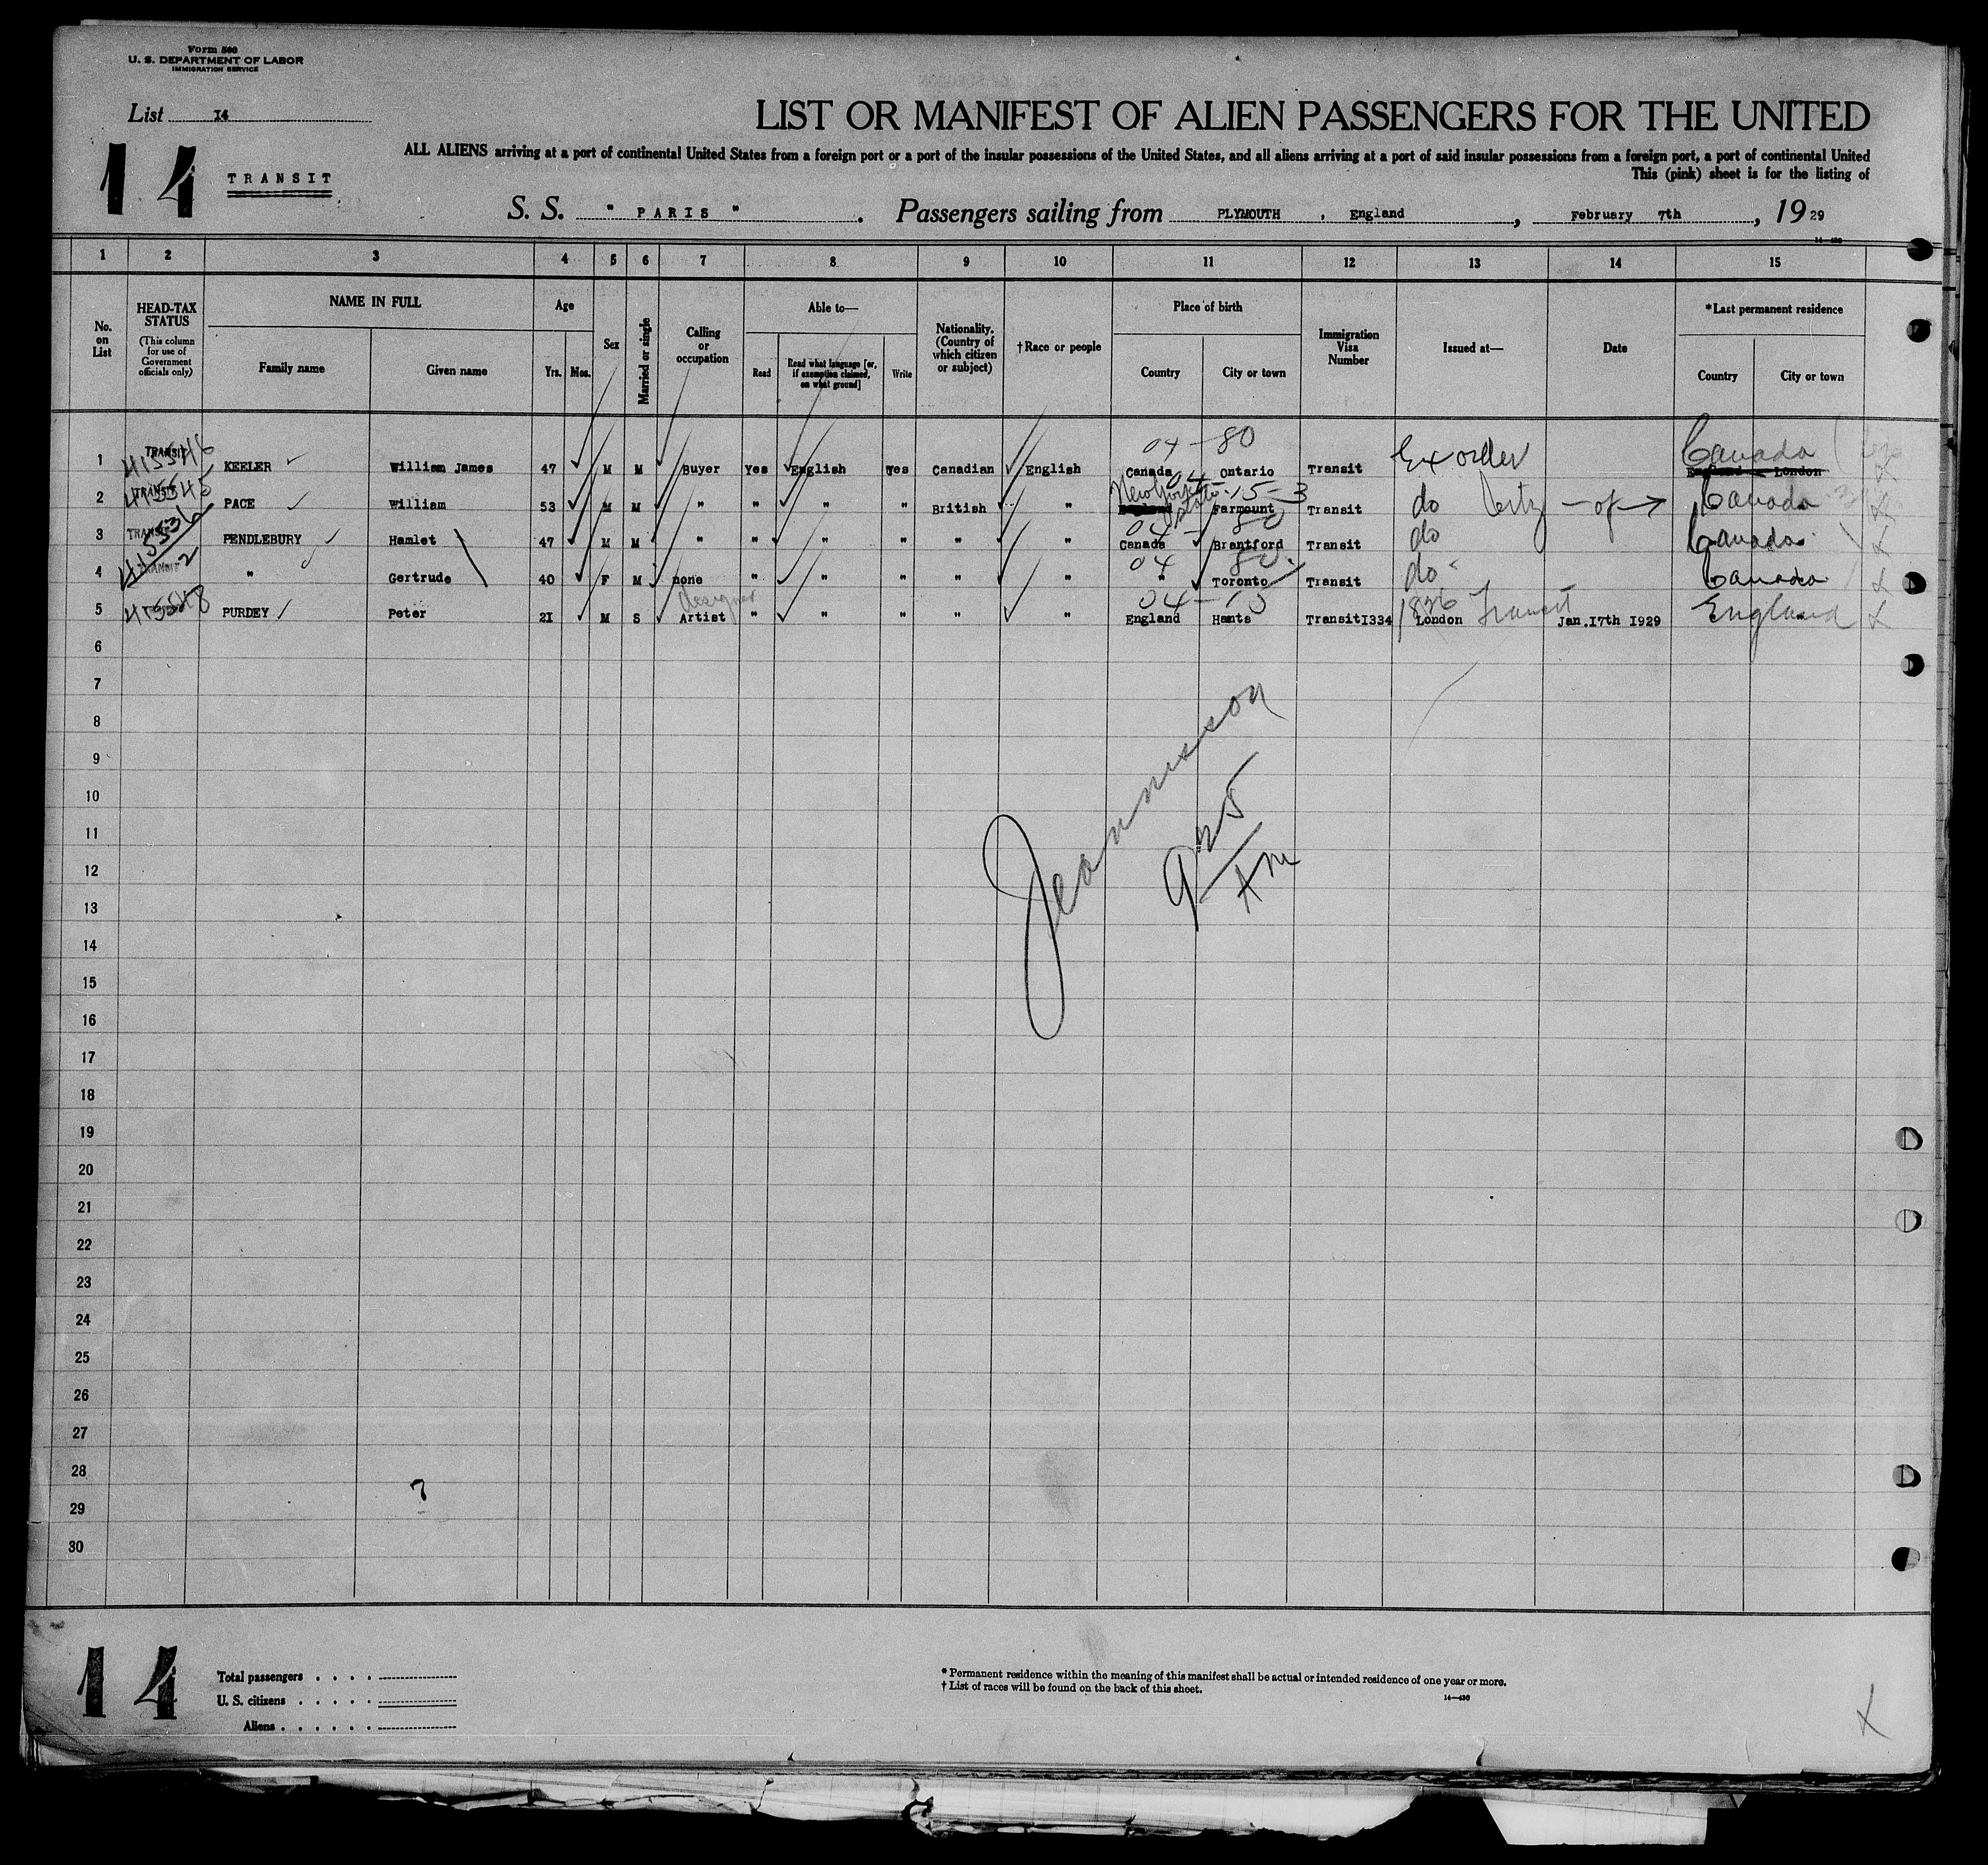 Form 500
U. S. DEPARTMENT OF LABOR
IMMIGRATION SERVICE
List I4
14 TRANSIT
LIST OR MANIFEST OF ALIEN PASSENGERS FOR THE UNITED
ALL ALIENS arriving at a port of continental United States from a foreign port or a port of the insular possessions of the United States, and all aliens arriving at a port of said insular possessions from a foreign port, a port of continental United
This (pink) sheet is for the listing of
S. S. " PARIS ". Passengers sailing from PLYMOUTH , England, February 7th, 1929
14—430
1 2 3 4 5 6 7 8 9 10 11 12 13 14 15
No. on List
HEAD-TAX STATUS
(This column for use of Government officials only)
NAME IN FULL
Family name
Given name
Age
Yrs. Mos.
Sex
Married or single
Calling or occupation
Able to—
Read
Read what language [or, if exemption claimed, on what ground]
Write
Nationality. (Country of which citizen or subject)
†Race or people
Place of birth
Country
City or town
Immigration Visa Number
Issued at—
Date
*Last permanent residence
Country
City or town
04-80
1 TRANSIT 415546 KEELER William James 47 M M Buyer Yes English Yes Canadian English Canada Ontario Transit Ex order Canada England London
2 TRANSIT 415545 PACE William 53 M M " " " " British " New York State 04-15-3 Farmount Transit do Ctz - of → Canada
04-80
3 TRANSIT 415536 PENDLEBURY Hamlet 47 M M " " " " " " Canada Brantford Transit do Canada
04 80
4 TRANSIT 2 " Gertrude 40 F M none " " " " " " Toronto Transit do Canada
designer 04-10 1826 Transit
5 415548 PURDEY Peter 2I M S Artist " " " " " England Hants TransitI334 London Jan.I7th I929 England
6
7
8
9
10
11
12
13
14
15
16
17
18
19
20
21
22
23
24
25
26
27
28
29
30
Jeannisson
925
Am
7
14
Total passengers
U. S. citizens
Aliens
* Permanent residence within the meaning of this manifest shall be actual or intended residence of one year or more.
† List of races will be found on the back of this sheet.
14—430
X